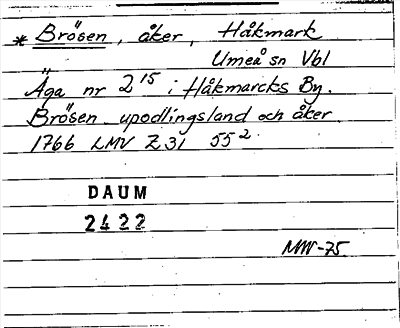 * Brösen, åker, Håkmark
Umeå sn Vbl
Äga nr 2 15 i Håkmarcks By.
Brösen upodlingsland och åker.
1766 LMV Z 31 55 2.
DAUM
2422
MW-75.